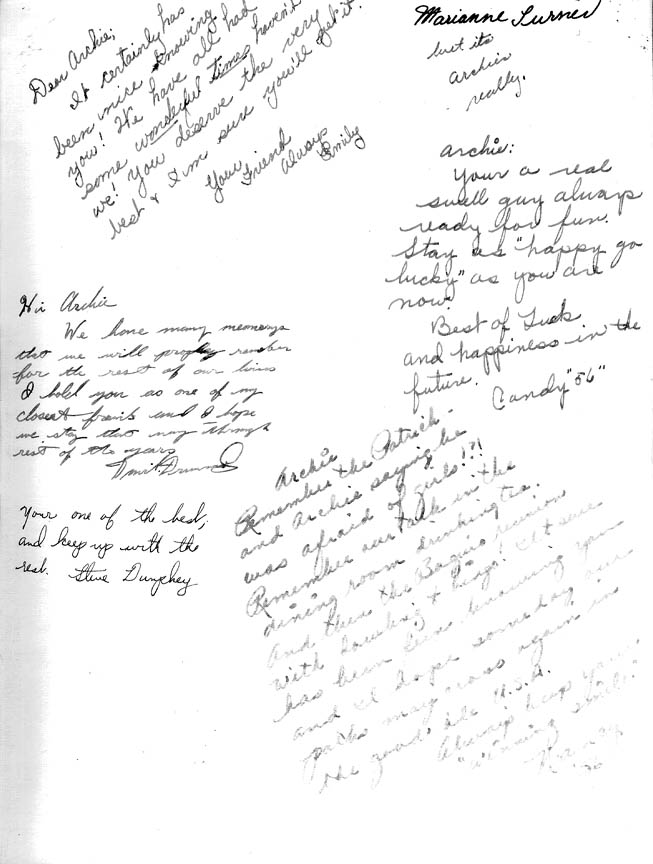 Dear Archie,
It certainly has
been nice knowing
you! We have all had
some wonderful times haven't
we! You deserve the very
best & I'm sure you'll get it.
Your
Friend
always
Emily
Marianne Turner
but its
Archies
really.
Archie:
Your a real
swell guy always
ready for fun.
Stay as "happy go
lucky" as you are
now.
Best of Luck
and happiness in the
future.
Candy "56"
Hi Archie
We have many memorys
that we will probly rember
for the rest of our lives
I hold you as one of my
closest freinds and I hope
we stay that way through
rest of the years
Your one of the best,
and keep up with the
rest. Steve Dumphey
Archie
Remember the Patrich -
and Archie saying he
was afraid of girls!?!
Remember our talk in the
dining room drinking tea.
And then the Baguio reunion
with bowling & bingo! It sure
has been fun knowing you
and I hope someday our
paths may cross again in
the good ole U.S.A.
Always keep your
"winning smile."